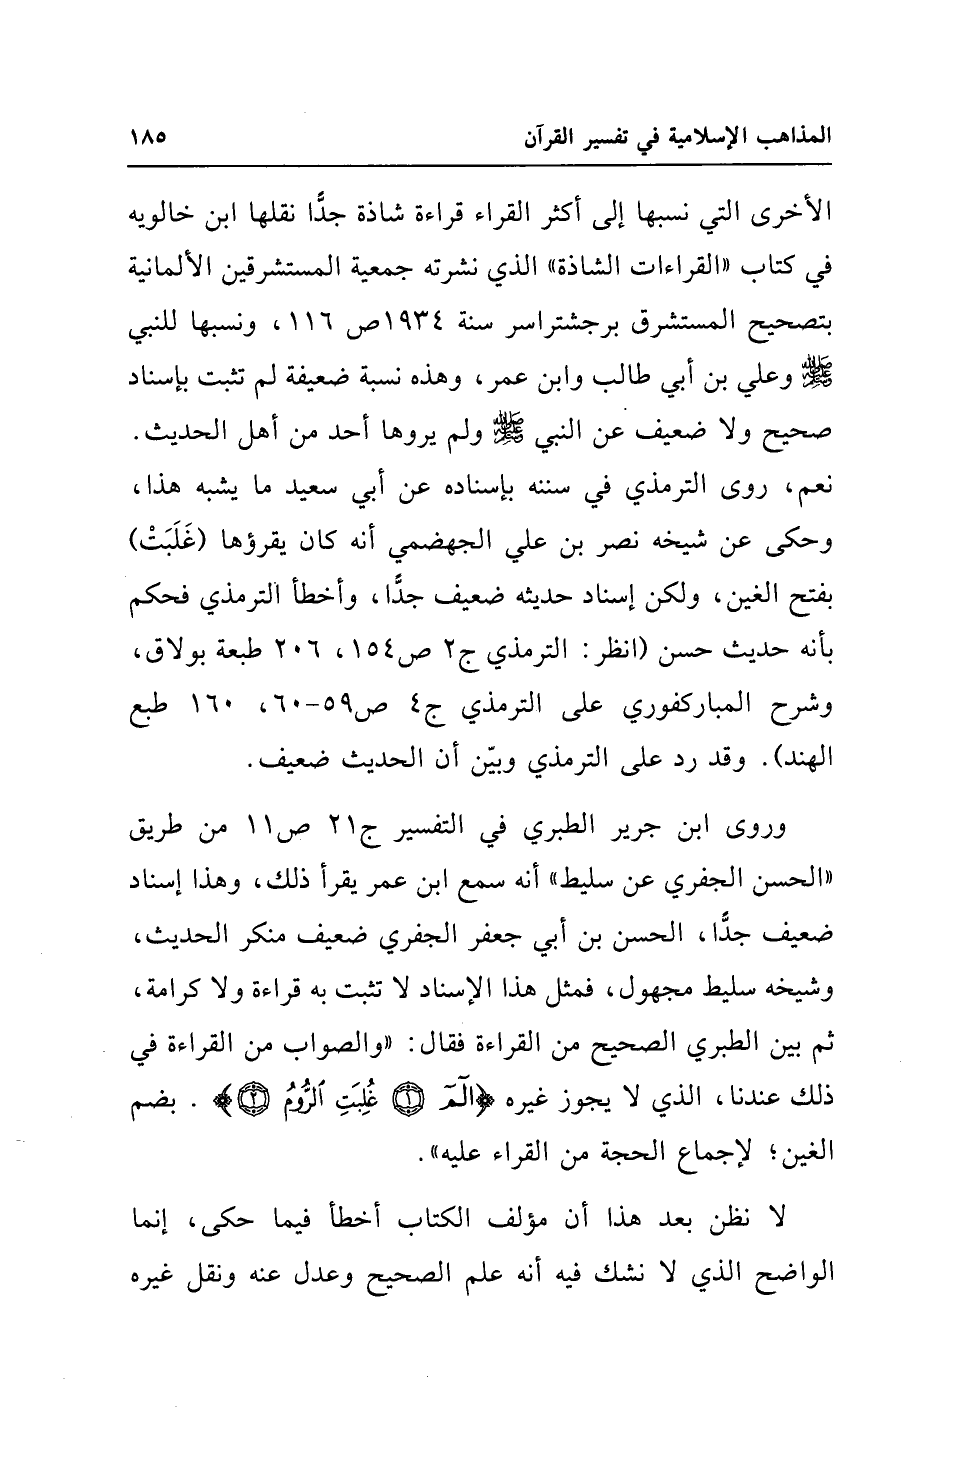 المذاهب الإسلامية في تفسير القرآن ١٨٥
الأخرى التي نسبها إلى أكثر القراء قراءة شاذة جدًّا نقلها ابن خالويه
في كتاب «القراءات الشاذة» الذي نشرته جمعية المستشرقين الألمانية
بتصحيح المستشرق برجشتراسر سنة ١٩٣٤ص ١١٦، ونسبها للنبي
ﷺ وعلي بن أبي طالب وابن عمر، وهذه نسبة ضعيفة لم تثبت بإسناد
صحيح ولا ضعيف عن النبي ﷺ ولم يروها أحد من أهل الحديث.
نعم، روى الترمذي في سننه بإسناده عن أبي سعيد ما يشبه هذا،
وحكى عن شيخه نصر بن علي الجهضمي أنه كان يقرؤها (غَلَبَتْ)
بفتح الغين، ولكن إسناد حديثه ضعيف جدًّا، وأخطأ الترمذي فحكم
بأنه حديث حسن (انظر: الترمذي ج٢ ص١٥٤، ٢٠٦ طبعة بولاق،
وشرح المباركفوري على الترمذي ج٤ ص٥٩-٦٠، ١٦٠ طبع
الهند). وقد رد على الترمذي وبيّن أن الحديث ضعيف.
وروى ابن جرير الطبري في التفسير ج٢١ ص١١ من طريق
«الحسن الجفري عن سليط» أنه سمع ابن عمر يقرأ ذلك، وهذا إسناد
ضعيف جدًّا، الحسن بن أبي جعفر الجفري ضعيف منكر الحديث،
وشيخه سليط مجهول، فمثل هذا الإسناد لا تثبت به قراءة ولا كرامة،
ثم بين الطبري الصحيح من القراءة فقال: «والصواب من القراءة في
ذلك عندنا، الذي لا يجوز غيره ﴿الٓمٓ ١ غُلِبَتِ ٱلرُّومُ ٢﴾ . بضم
الغين؛ لإجماع الحجة من القراء عليه».
لا نظن بعد هذا أن مؤلف الكتاب أخطأ فيما حكى، إنما
الواضح الذي لا نشك فيه أنه علم الصحيح وعدل عنه ونقل غيره